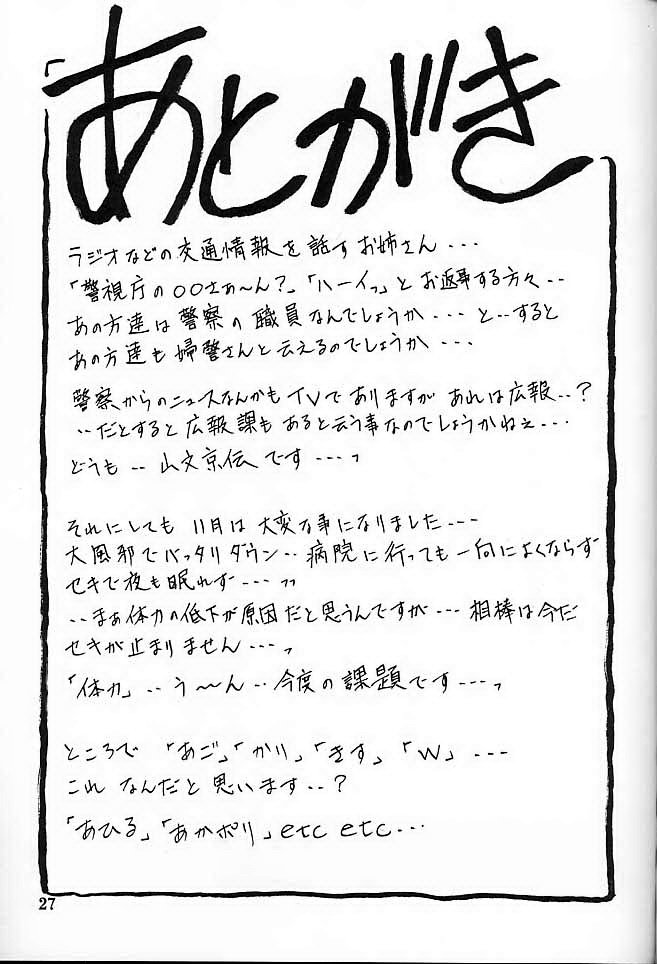 「あとがき
ラジオなどの交通情報を話すお姉さん・・・
「警視庁の○○さぁ〜ん?」「ハーイっ」とお返事する方々・・
あの方達は警察の職員なんでしょうか・・・と・・すると
あの方達も婦警さんと云えるのでしょうか・・・
警察からのニュースなんかもTVでありますがあれは広報・・?
・・だとすると広報課もあると云う事なのでしょうかねぇ・・・
どうも・・山文京伝です・・・っ
それにしても11月は大変な事になりました・・・
大風邪でバッタリダウン・・病院に行っても一向によくならず
セキで夜も眠れず・・・っっ
・・まぁ体力の低下が原因だと思うんですが・・・相棒は今だ
セキが止まりません・・・っ
「体力」・・う〜〜ん・・今度の課題です・・・っ
ところで「あご」「かり」「きす」「W」・・・
これなんだと思います・・?
「あひる」「あかポリ」etc etc・・・
27